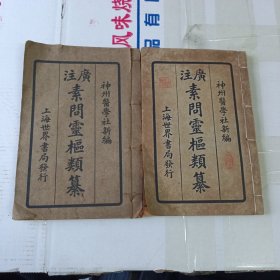 风味烧
品有
神州醫學社新編
廣註
素問靈樞類纂
上海世界書局發行
神州醫學社新編
廣註
素問靈樞類纂
上海世界書局發行